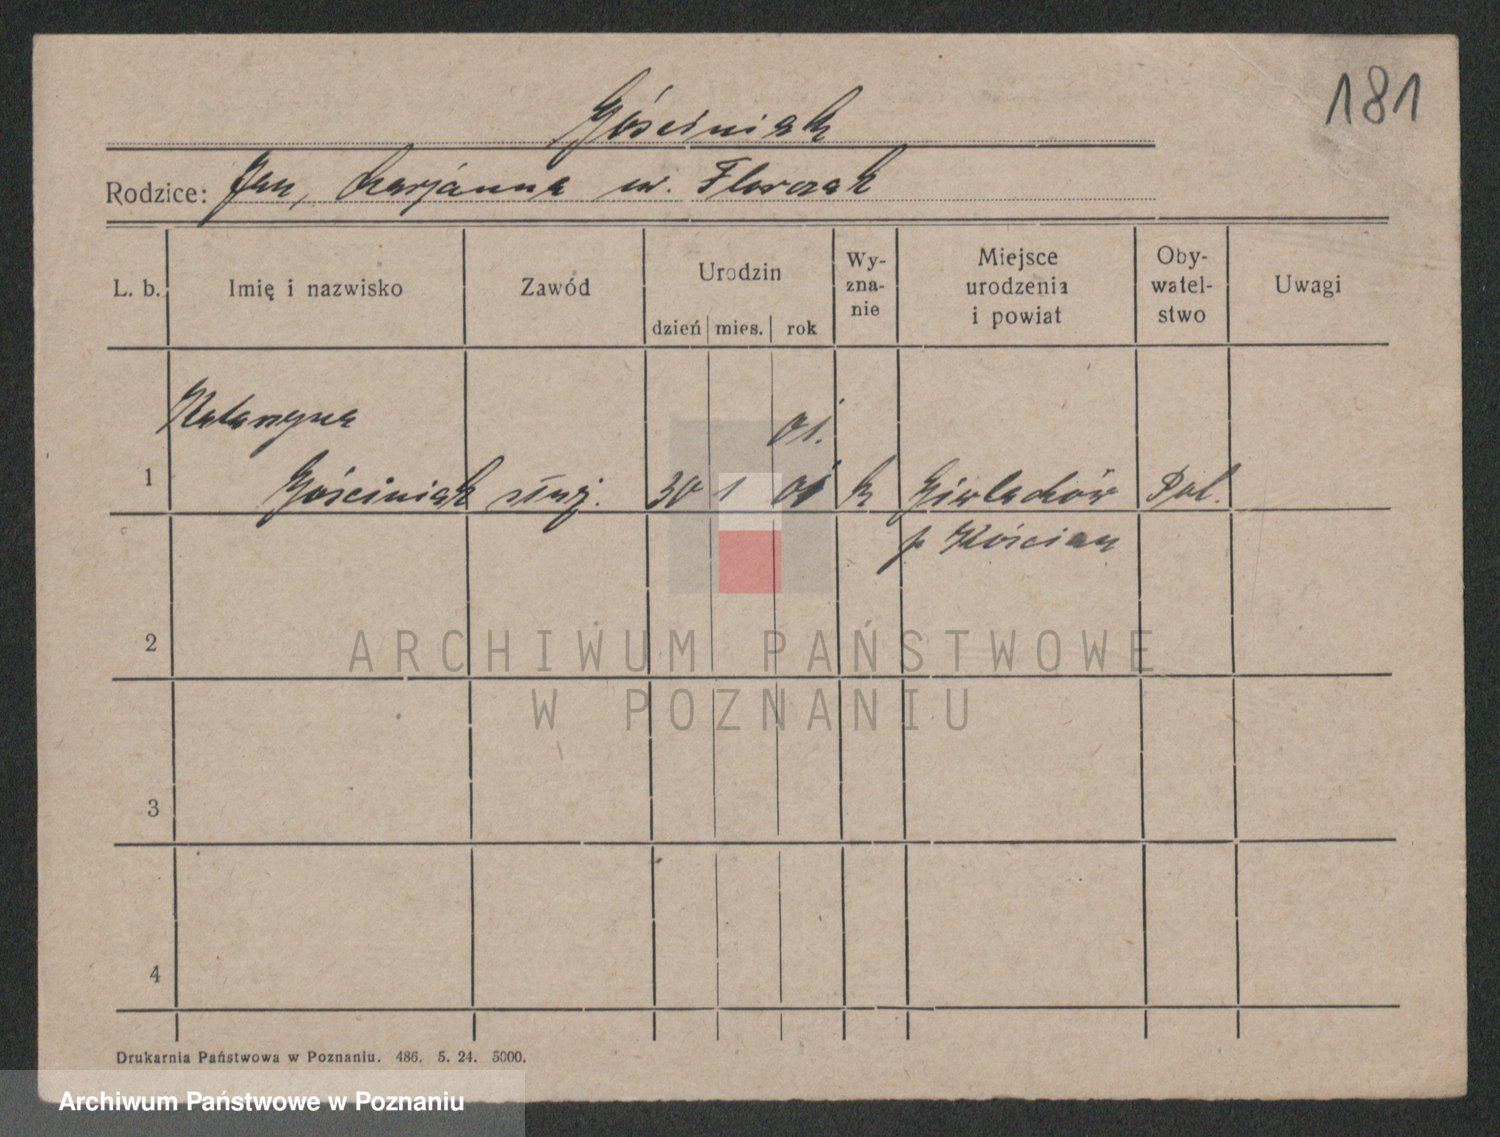 181
Gościniak
Rodzice: Jan, Marjanna ur. Florczak
L. b. Imię i nazwisko Zawód Urodzin dzień mies. rok Wy-zna-nie Miejsce urodzenia i powiat Oby-watel-stwo Uwagi
Katarzyna 01.
1 Gościniak służ. 30 1 01 k Pol.
p Kościan
2
3
4
ARCHIWUM PAŃSTWOWE
W POZNANIU
Drukarnia Państwowa w Poznaniu. 486. 5. 24. 5000.
Archiwum Państwowe w Poznaniu